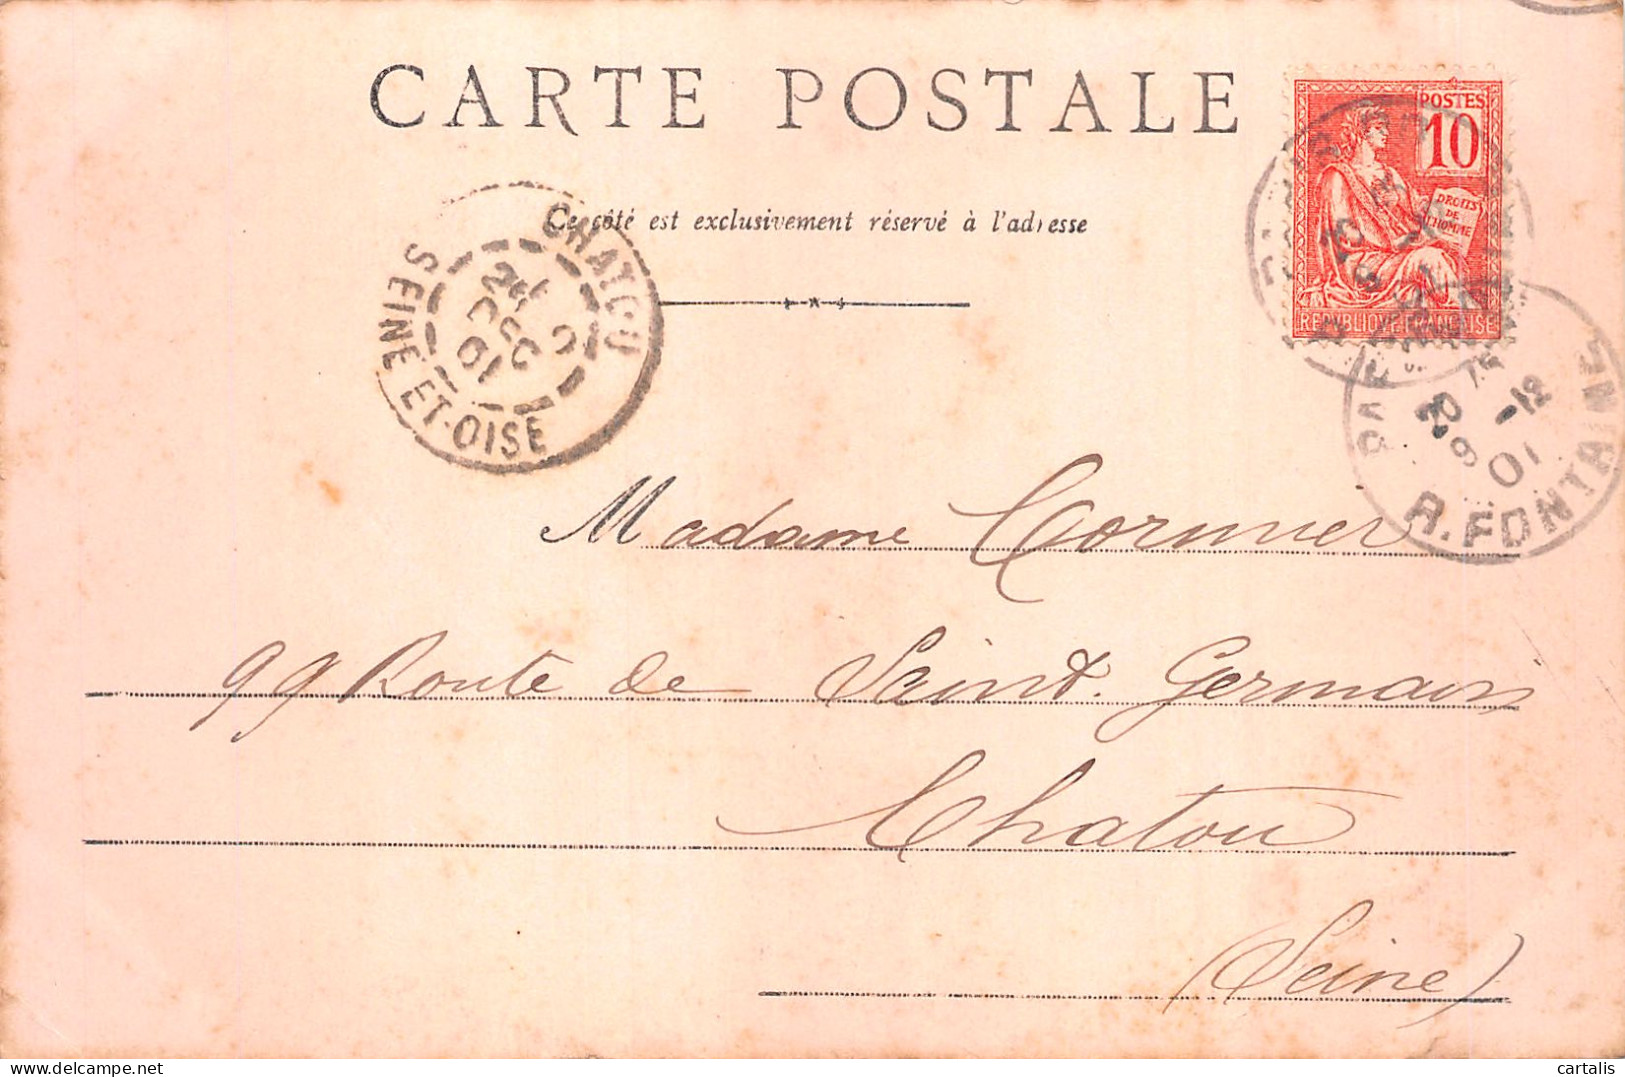 CARTE POSTALE
Ce côté est exclusivement réservé à l'adresse
POSTES
10
DROITS
DE
L'HOMME
REPUBLIQUE FRANÇAISE
CHATOU
DEC
01
SEINE ET-OISE
-12
01
R. FONTAINE
Madame Cormier
99 Route de Saint. Germain
Chatou
(Seine)
delcampe.net
cartalis